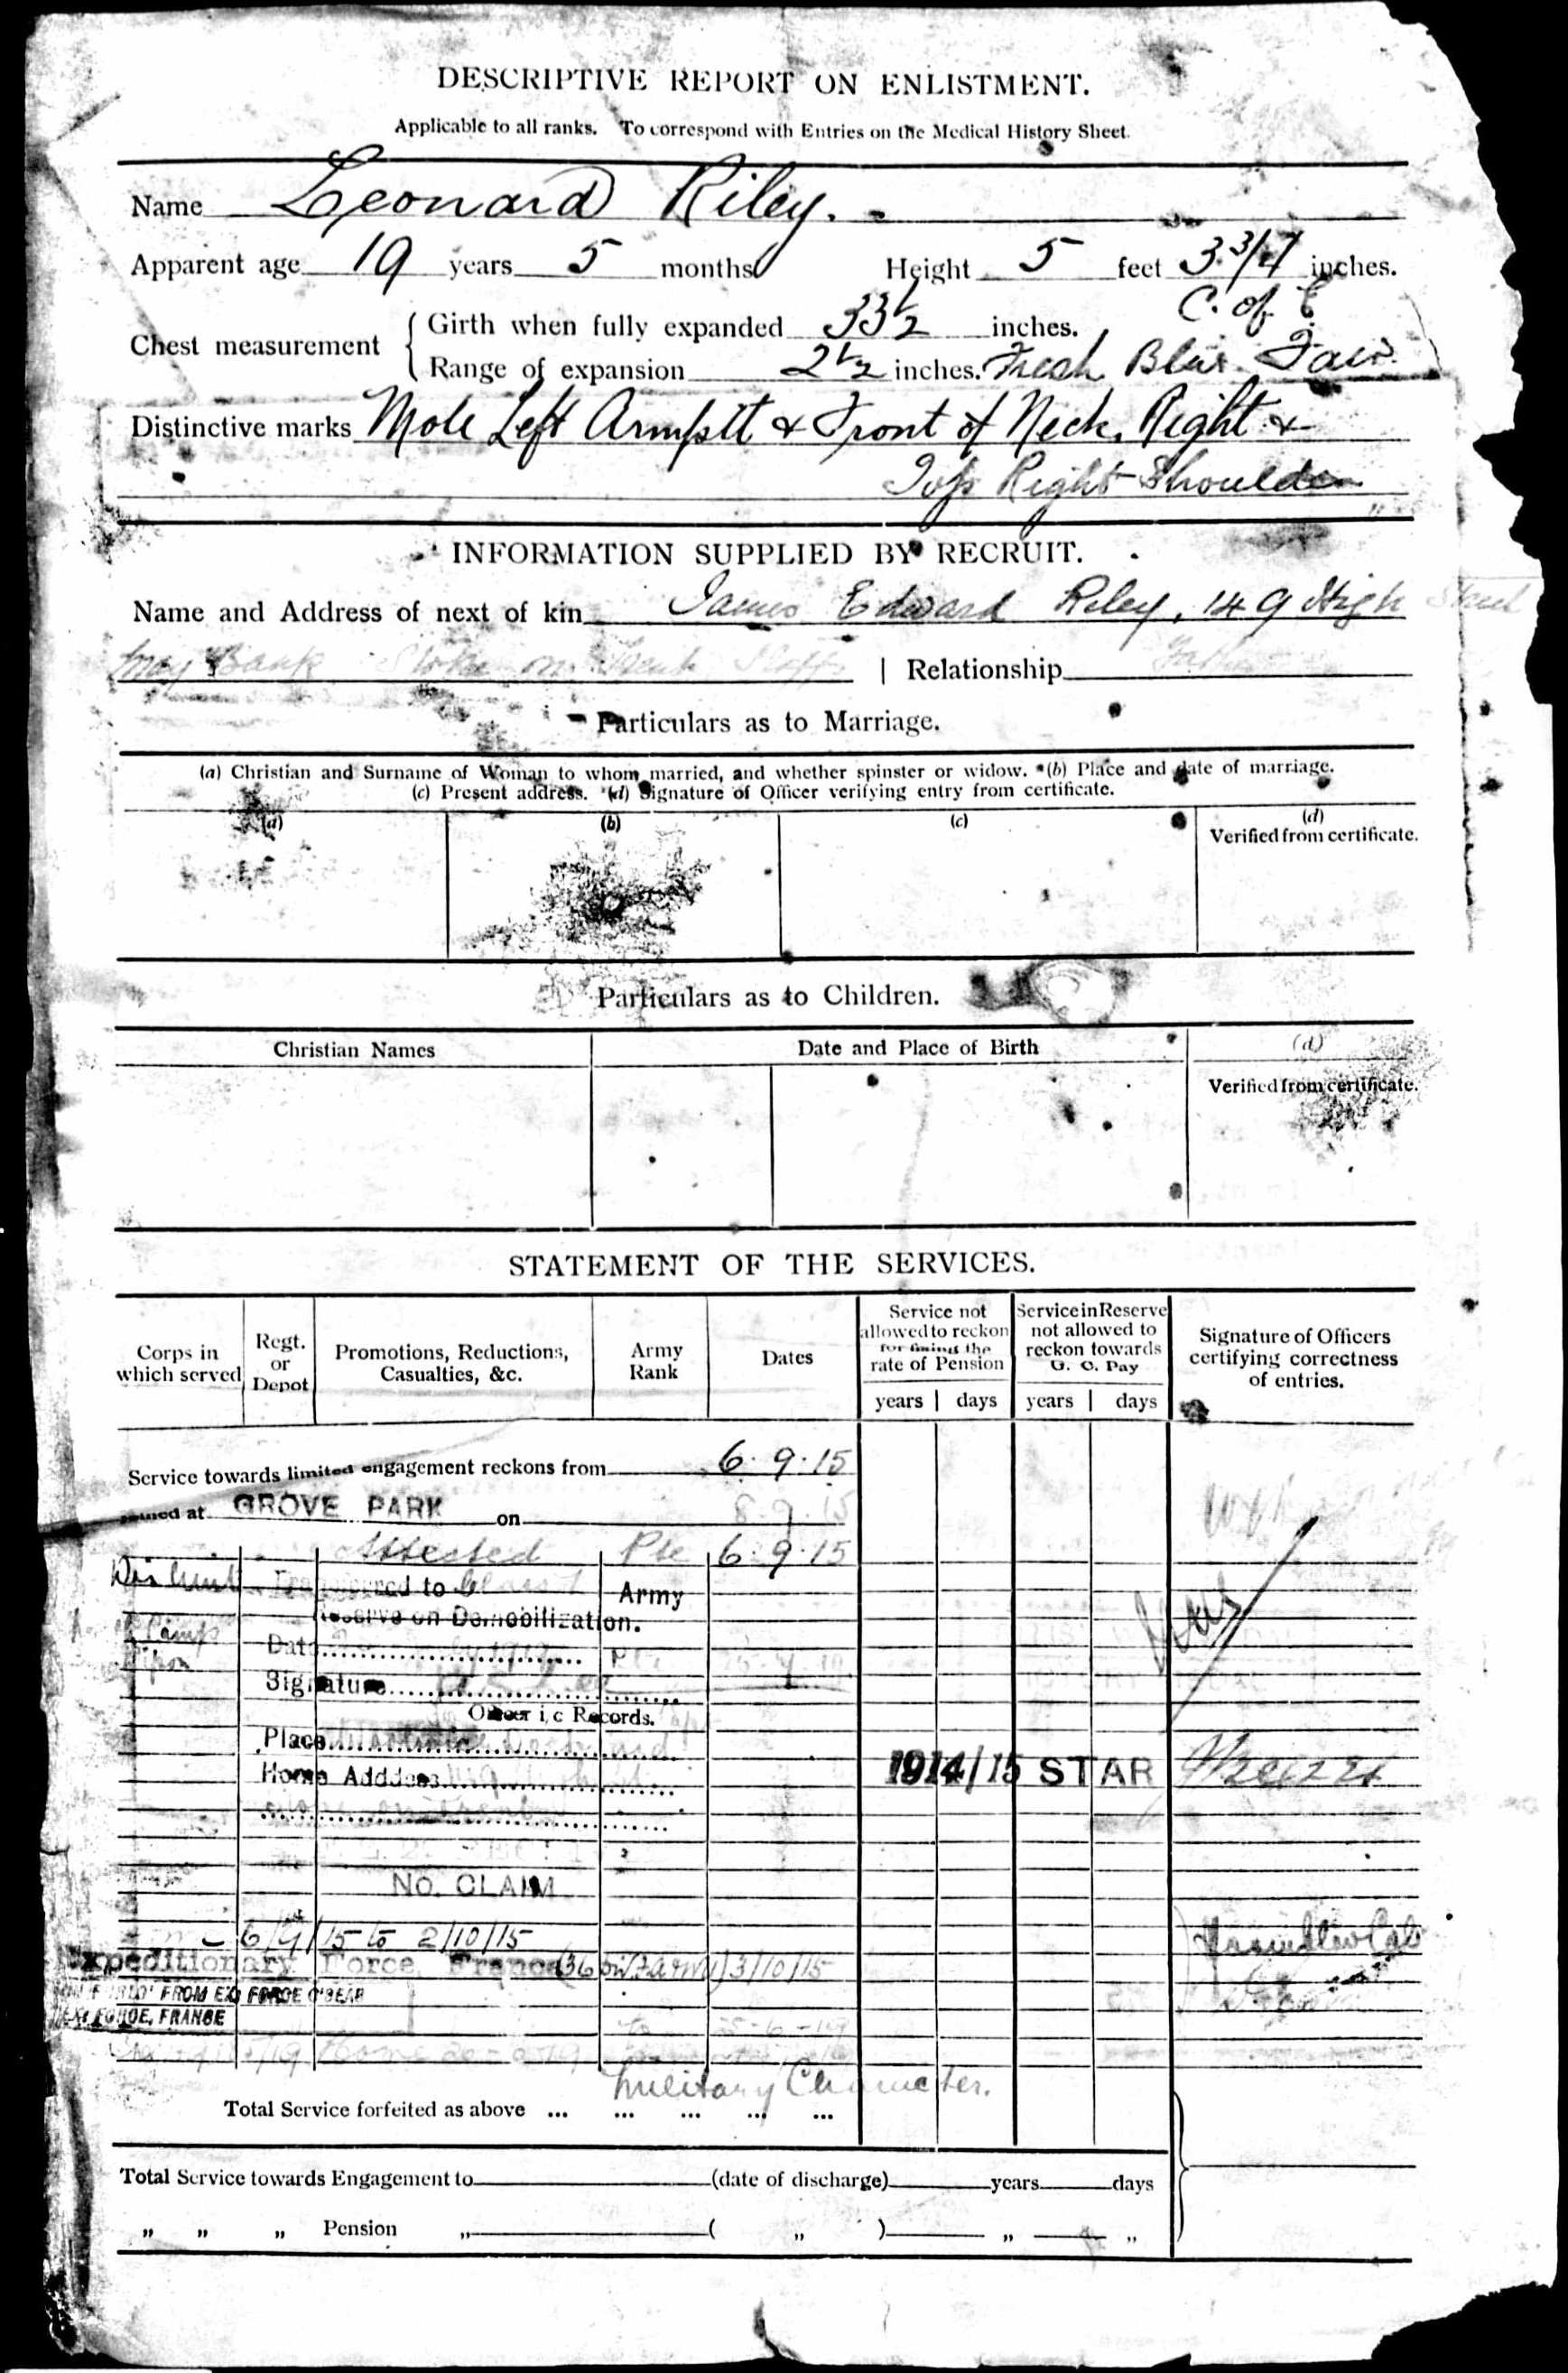 DESCRIPTIVE REPORT ON ENLISTMENT.
Applicable to all ranks. To correspond with Entries on the Medical History Sheet.
Name Leonard Riley.
Apparent age 19 years 5 months Height 5 feet 3 3/4 inches.
C. of E
Chest measurement { Girth when fully expanded 33 1/2 inches.
Range of expansion 2 1/2 inches. Fresh Blue Fair
Distinctive marks Mole Left Armpitt & Front of Neck, Right &
Top Right Shoulder
INFORMATION SUPPLIED BY RECRUIT.
Name and Address of next of kin James Edward Riley, 149 High Street
May Bank Stoke on Trent Staffs | Relationship Father
Particulars as to Marriage.
(a) Christian and Surname of Woman to whom married, and whether spinster or widow. (b) Place and date of marriage.
(c) Present address. (d) Signature of Officer verifying entry from certificate.
(a) (b) (c) (d)
Verified from certificate.
Particulars as to Children.
Christian Names Date and Place of Birth (d)
Verified from certificate.
STATEMENT OF THE SERVICES.
Corps in which served Regt. or Depot Promotions, Reductions, Casualties, &c. Army Rank Dates Service not allowed to reckon for fixing the rate of Pension Service in Reserve not allowed to reckon towards G. C. Pay Signature of Officers certifying correctness of entries.
years | days years | days
Service towards limited engagement reckons from 6.9.15
Joined at GROVE PARK on 8.9.15
Attested Pte 6.9.15
Transferred to Class Army
Reserve on Demobilization.
Camp
Ripon
Date 1919
Signature
Officer i/c Records.
Place
Home Adddess
1914/15 STAR
NO. CLAIM
6/9/15 to 2/10/15
Expeditionary Force, France 3/10/15
FROM EX. FORCE
EX. FORCE, FRANCE
Home
Military Character.
Total Service forfeited as above ... ... ... ... ...
Total Service towards Engagement to (date of discharge) years days
" " " Pension " ( " ) " "